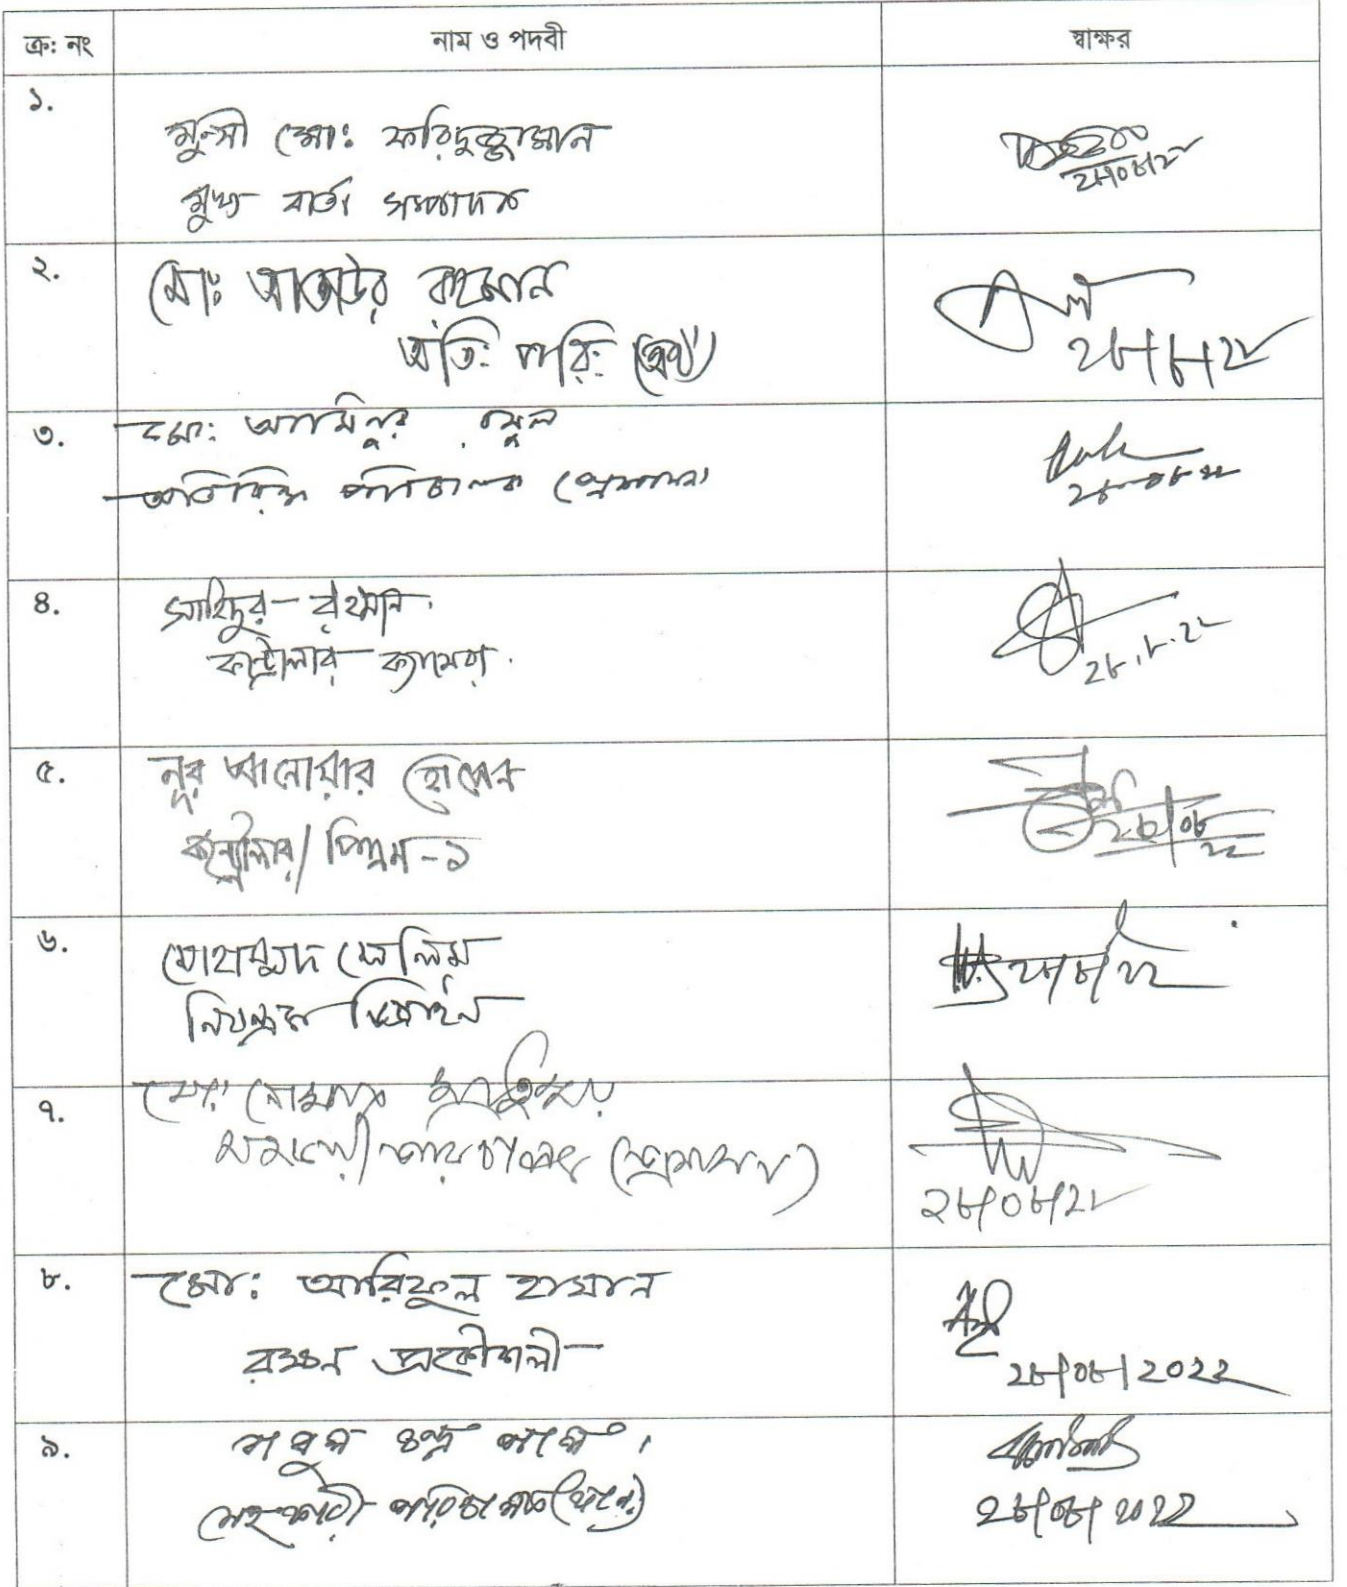 ক্র: নং নাম ও পদবী স্বাক্ষর
১.
মুন্সী মো: ফরিদুজ্জামান
মুখ্য বার্তা সম্পাদক
২৮/০৮/২২
২.
মোঃ আতাউর রহমান
অতি: পরি: (অর্থ)
২৮/৮/২২
৩.
মো: আমিনুর রসুল
অতিরিক্ত পরিচালক (প্রশাসন)
২৮-০৮-২২
৪.
সাহিদুর রহমান
কন্ট্রোলার ক্যামেরা
২৮.৮.২২
৫.
নূর আনোয়ার হোসেন
কন্ট্রোলার/
২৮/০৮
২২
৬.
মোহাম্মাদ সেলিম
নিয়ন্ত্রক ডিজাইন
২৮/৮/২২
৭.
মোঃ
সহকারী পরিচালক (প্রশাসন)
২৮/০৮/২২
৮.
মো: আরিফুল হাসান
রক্ষণ প্রকৌশলী
২৮/০৮/২০২২
৯.
চন্দ্র
সহকারী পরিচালক
২৮/০৮/২০২২